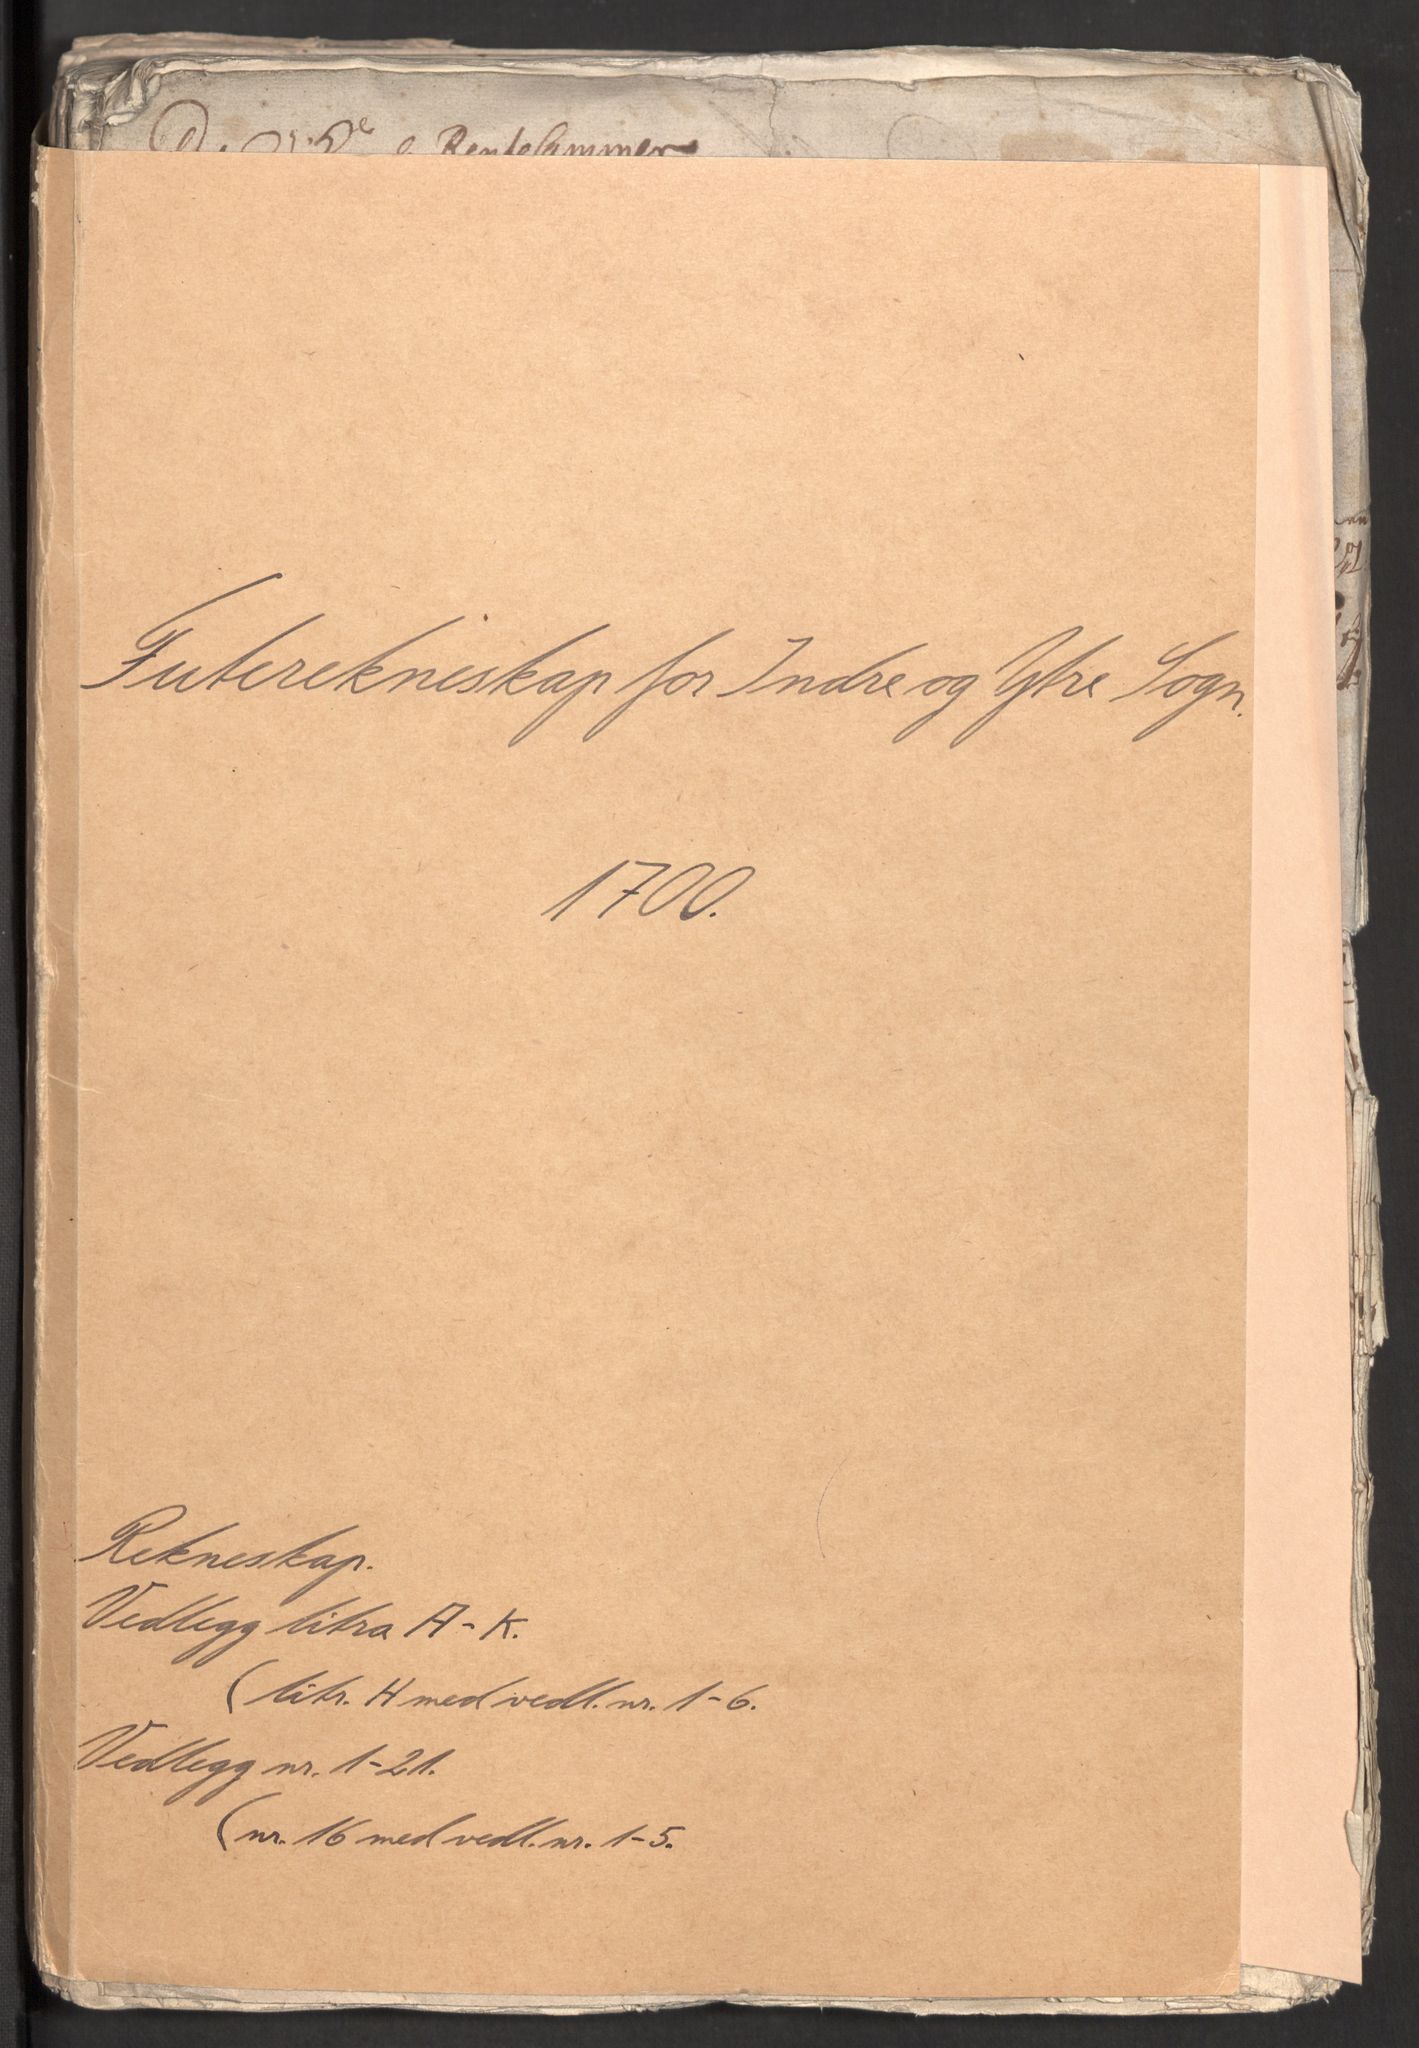 Rentekammer
Futerekneskap for Indre og Ytre Sogn.
1700.
Rekneskap.
Vedlegg litra A-K.
(litr. H med vedl. nr. 1-6.
Vedlegg nr. 1-21.
(nr. 16 med vedl. nr. 1-5.